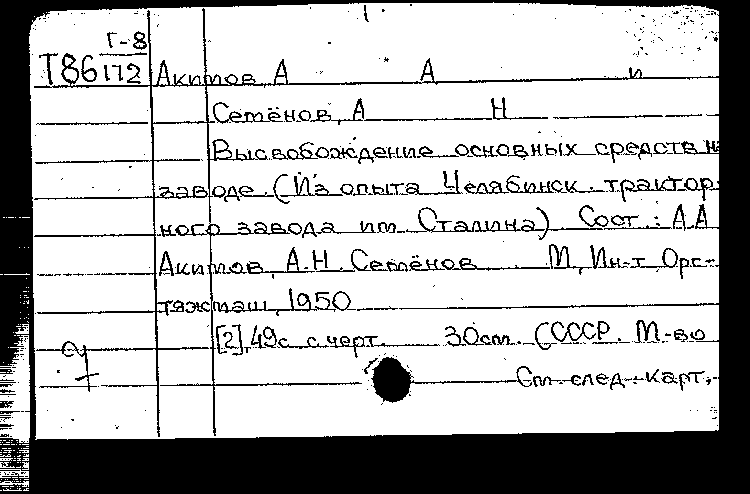 Г-8
Т86 172 Акимов, А А и
Семёнов, А Н
Высвобождение основных средств на
заводе. (Из опыта Челябинск. трактор-
ного завода им. Сталина) Сост.: А.А.
Акимов, А.Н. Семёнов М, Ин-т Орг-
тяжмаш, 1950
[2], 49с. с черт. 30см. (СССР. М-во
См. след. карт.